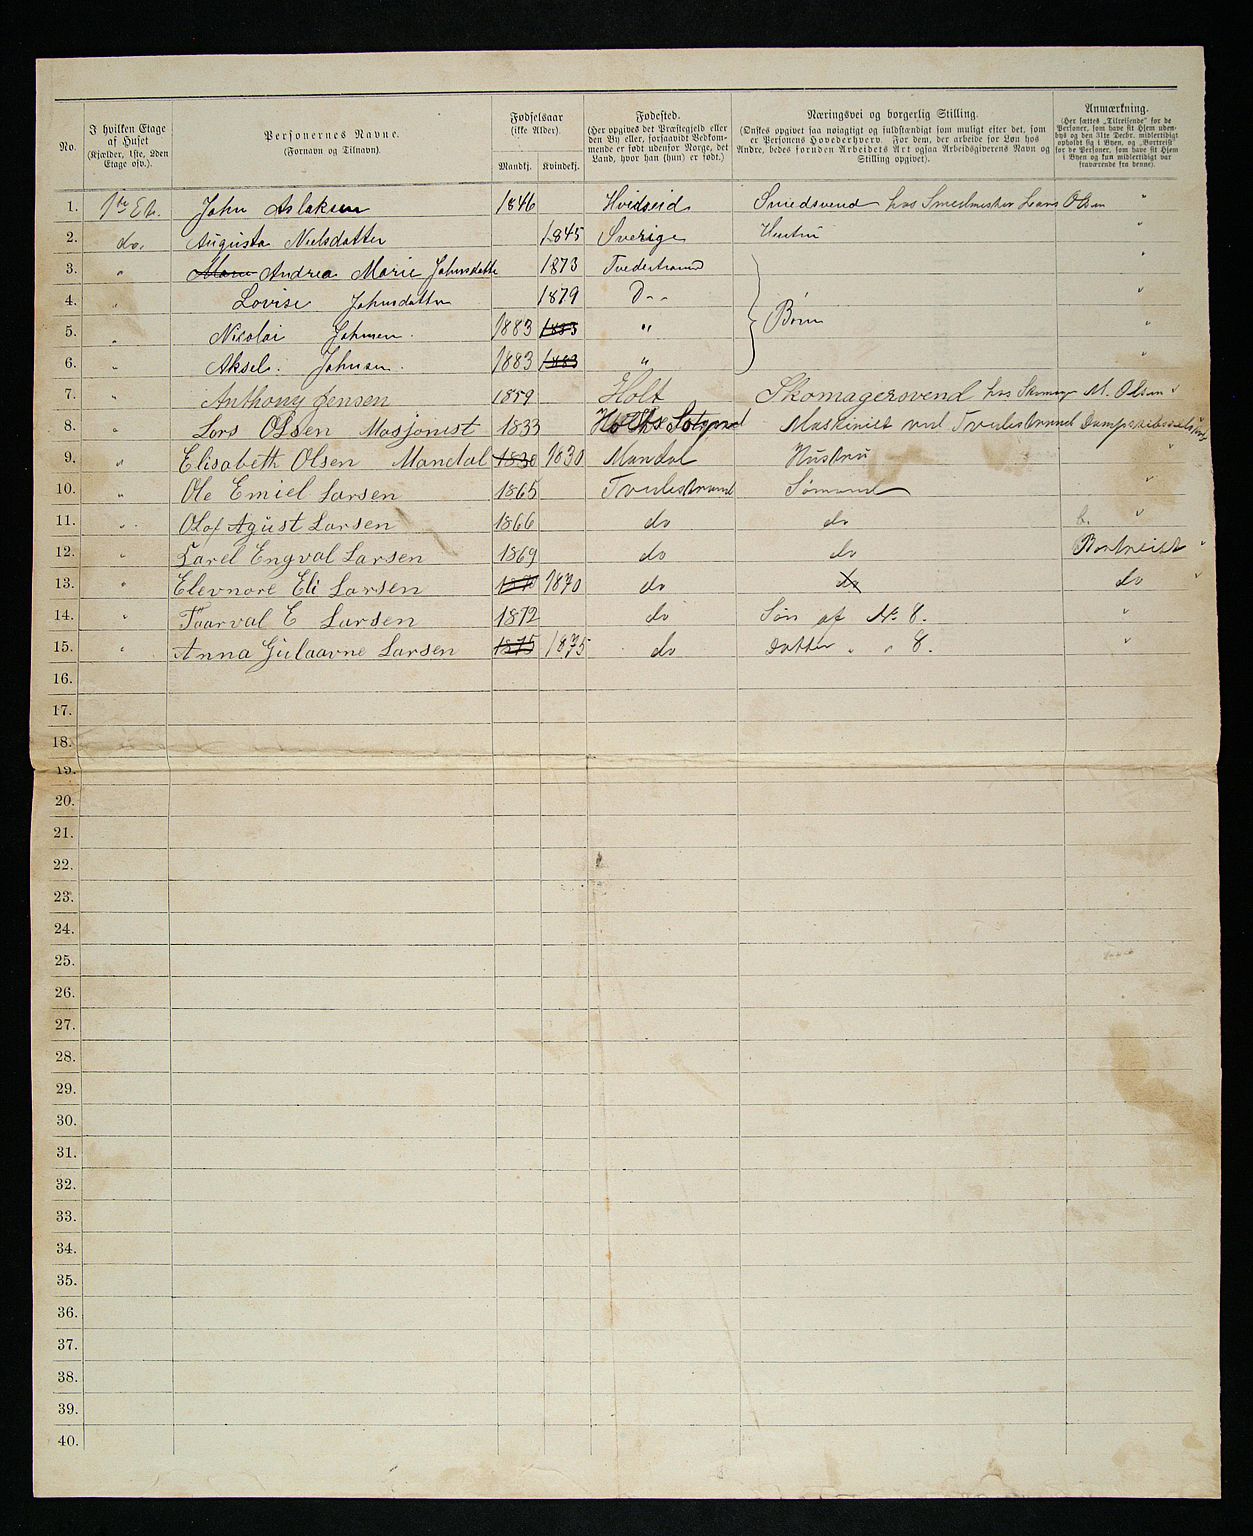 No.
I hvilken Etage af Huset (Kjælder, 1ste, 2den Etage osv.).
Personernes Navne. (Fornavn og Tilnavn).
Fødselsaar (ikke Alder).
Mandkj. Kvindekj.
Fødested. (Her opgives det Præstegjeld eller den By eller, forsaavidt Vedkommende er født udenfor Norge, det Land, hvor han (hun) er født.)
Næringsvei og borgerlig Stilling. (Ønskes opgivet saa nøiagtigt og fuldstændigt som muligt efter det, som er Personens Hovederhverv. For dem, der arbeide for Løn hos Andre, bedes foruden Arbeidets Art ogsaa Arbeidsgiverens Navn og Stilling opgivet).
Anmærkning. (Her sættes „Tilreisende" for de Personer, som have sit Hjem udenbys og den 31te Decbr. midlertidigt opholdt sig i Byen, og „Bortreist" for de Personer, som have sit Hjem i Byen og kun midlertidigt var fraværende fra denne).
1. 1ste Et. John Aslaksen 1846 Hvidseid Smedsvend hos Smedmester Lars Olsen "
2. do. Augusta Nielsdatter 1845 Sverige Hustru "
3. " Marie Andrea Marie Johnsdatter 1873 Tvedestrand "
4. " Lovise Johnsdatter 1879 Do "
5. " Nicolai Johnsen. 1883 1883 " Børn "
6. " Aksel. Johnsen. 1883 1883 " "
7. " Anthony Jensen 1859 Holt Skomagersvend hos Skomager M. Olsen "
8. " Lars Olsen Masjonist 1833 Holts Maskinist ved Tvedestrand
9. " Elisabeth Olsen Mandal 1830 1830 Mandal Hustru "
10. " Ole Emiel Larsen 1865 Tvedestrand Sømand "
11. " Olaf Agust Larsen 1866 do do b. "
12. " Carel Engval Larsen 1869 do do Bortreist "
13. " Elevnore Eli Larsen 1870 1870 do do do "
14. " Taarval E Larsen 1872 do Søn af No 8. "
15. " Anna Gulaavne Larsen 1875 1875 do datter " " 8. "
16.
17.
18.
19.
20.
21.
22.
23.
24.
25.
26.
27.
28.
29.
30.
31.
32.
33.
34.
35.
36.
37.
38.
39.
40.